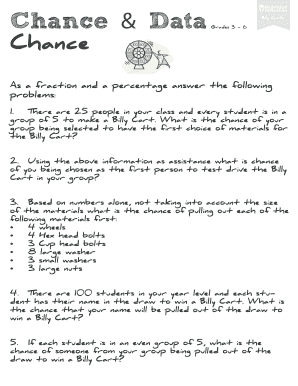 Chance & Data Grades 3 - 6
Chance
As a fraction and a percentage answer the following
problems:
1. There are 25 people in your class and every student is in a
group of 5 to make a Billy Cart. What is the chance of your
group being selected to have the first choice of materials for
the Billy Cart?
2. Using the above information as assistance what is chance
of you being chosen as the first person to test drive the Billy
Cart in your group?
3. Based on numbers alone, not taking into account the size
of the materials what is the chance of pulling out each of the
following materials first:
• 4 wheels
• 4 Hex head bolts
• 3 Cup head bolts
• 8 large washer
• 3 small washers
• 3 large nuts
4. There are 100 students in your year level and each stu-
dent has their name in the draw to win a Billy Cart. What is
the chance that your name will be pulled out of the draw to
win a Billy Cart?
5. If each student is in an even group of 5, what is the
chance of someone from your group being pulled out of the
draw to win a Billy Cart?